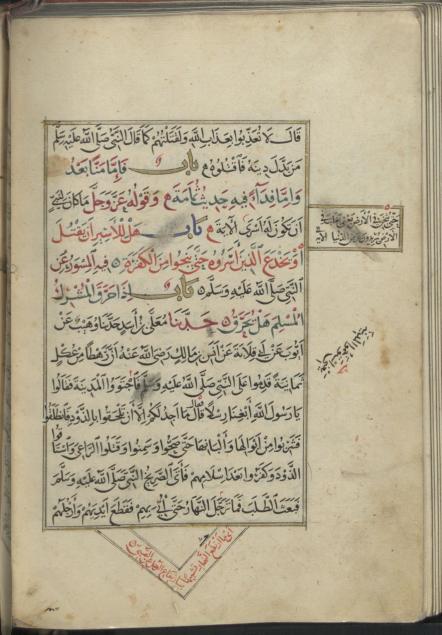 قَالَ لَا تُعَذِّبُوا بِعَذَابِ اللهِ وَلَقَتَلْتُهُمْ كَمَا قَالَ النَّبِيُّ صَلَّى اللهُ عَلَيْهِ وَسَلَّمَ
مَنْ بَدَّلَ دِينَهُ فَاقْتُلُوهُ بَاب فَإِمَّا مَنًّا بَعْدُ
وَإِمَّا فِدَاءً فِيهِ حَدِيثُ ثُمَامَةَ وَقَوْلُهُ عَزَّ وَجَلَّ مَا كَانَ لِنَبِيٍّ
أَنْ يَكُونَ لَهُ أَسْرَى الْآيَةَ بَاب هَلْ لِلْأَسِيرِ أَنْ يَقْتُلَ
أَوْ يَخْدَعَ الَّذِينَ أَسَرُوهُ حَتَّى يَنْجُوَ مِنَ الْكَفَرَةِ فِيهِ الْمِسْوَرُ عَنِ
النَّبِيِّ صَلَّى اللهُ عَلَيْهِ وَسَلَّمَ بَاب إِذَا حَرَّقَ الْمُشْرِكُ
الْمُسْلِمَ هَلْ يُحَرَّقُ حَدَّثَنَا مُعَلَّى بْنُ أَسَدٍ حَدَّثَنَا وُهَيْبٌ عَنْ
أَيُّوبَ عَنْ أَبِي قِلَابَةَ عَنْ أَنَسِ بْنِ مَالِكٍ رَضِيَ اللهُ عَنْهُ أَنَّ رَهْطًا مِنْ عُكْلٍ
ثَمَانِيَةً قَدِمُوا عَلَى النَّبِيِّ صَلَّى اللهُ عَلَيْهِ وَسَلَّمَ فَاجْتَوَوُا الْمَدِينَةَ فَقَالُوا
يَا رَسُولَ اللهِ أَبْغِنَا رِسْلًا قَالَ مَا أَجِدُ لَكُمْ إِلَّا أَنْ تَلْحَقُوا بِالذَّوْدِ فَانْطَلَقُوا
فَشَرِبُوا مِنْ أَبْوَالِهَا وَأَلْبَانِهَا حَتَّى صَحُّوا وَسَمِنُوا وَقَتَلُوا الرَّاعِيَ وَاسْتَاقُوا
الذَّوْدَ وَكَفَرُوا بَعْدَ إِسْلَامِهِمْ فَأَتَى الصَّرِيخُ النَّبِيَّ صَلَّى اللهُ عَلَيْهِ وَسَلَّمَ
فَبَعَثَ الطَّلَبَ فَمَا تَرَجَّلَ النَّهَارُ حَتَّى أُتِيَ بِهِمْ فَقَطَعَ أَيْدِيَهُمْ وَأَرْجُلَهُمْ
حَتَّى يُثْخِنَ فِي الْأَرْضِ يَعْنِي يَغْلِبَ فِي
الْأَرْضِ تُرِيدُونَ عَرَضَ الدُّنْيَا الْآيَةَ